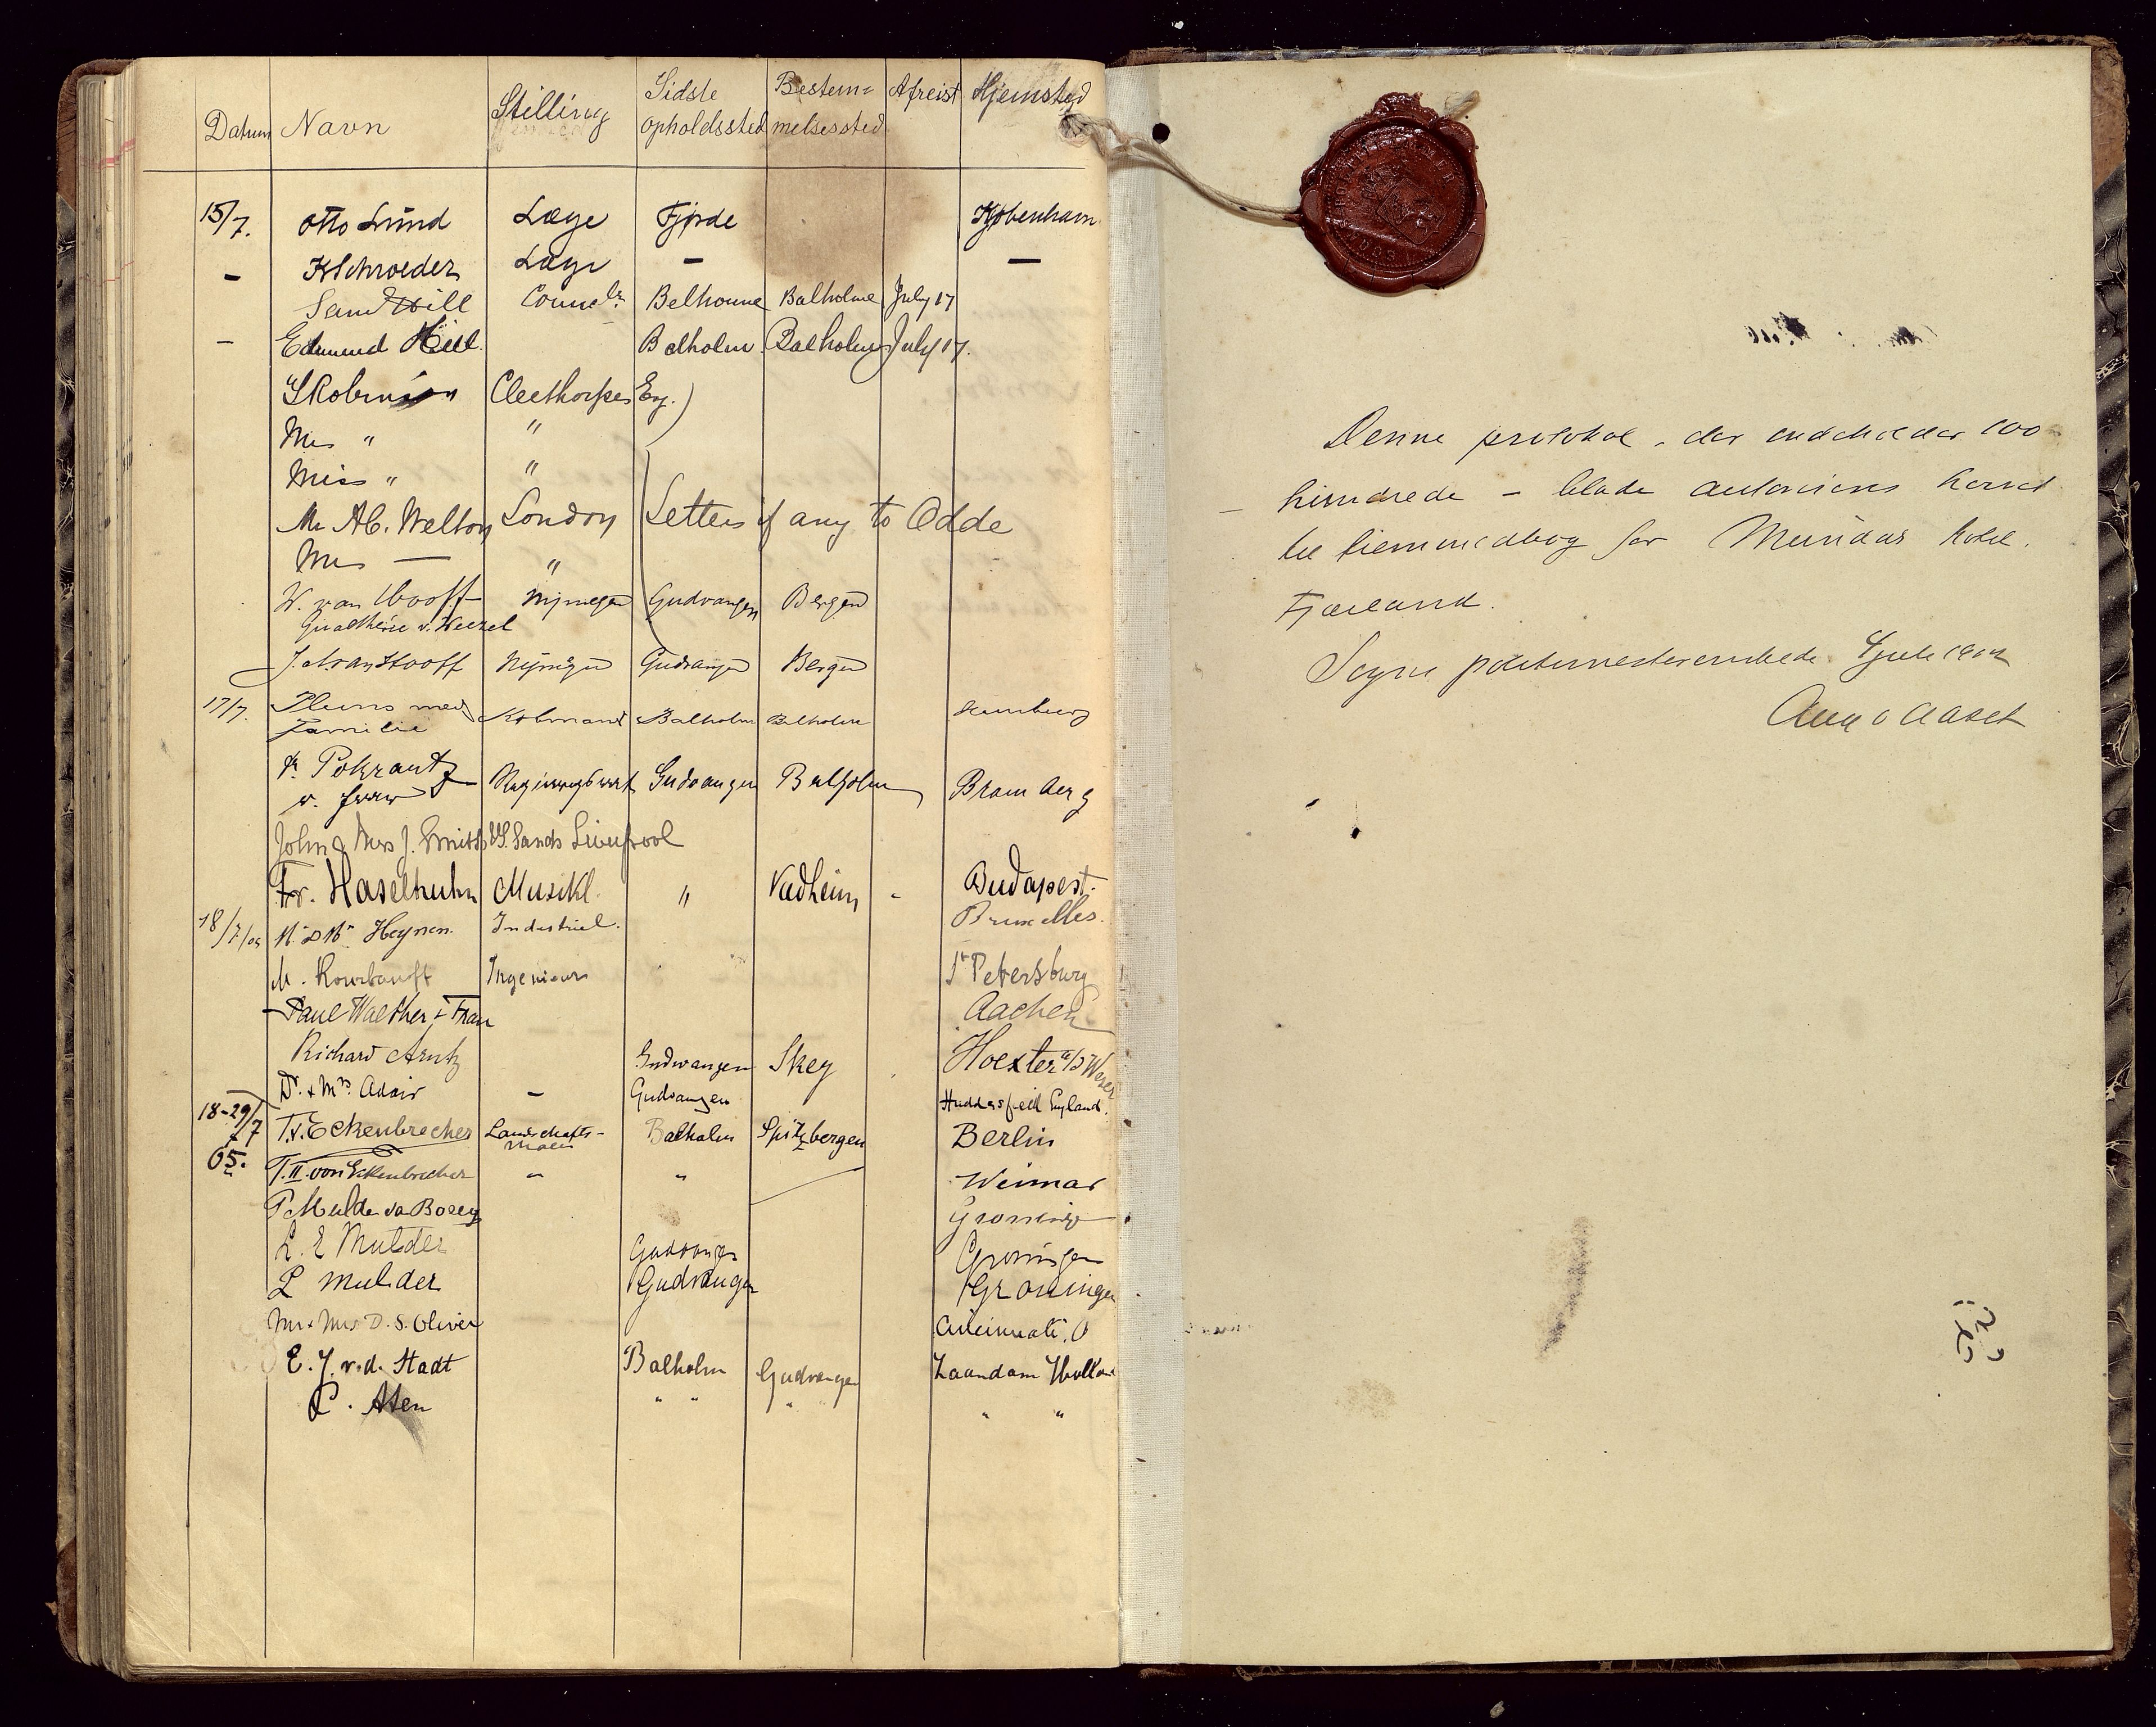 Datum Navn Stilling Sidste opholdssted Bestem= melsessted Afreist Hjemsted
15/7. Otto Lund Læge Fjørde Kjøbenhavn
- K Schroeder Læge - -
Sam Hill Balholme July 17
- Edmund Hill Balholm Balholm July 17.
S Robinson Cleethorpes Eng.)
Mrs " "
Miss " "
Mr A C. Welton London Letters if any to Odde
Mrs — "
W. van Hooff Nijmegen Gudvangen Bergen
J. van Hooff Nijmegen Gudvangen Bergen
17/7. med Familie Kobmand Balholm Balholm Hamburg
Pokrantz Gudvangen Balholm Bromberg
John & Mrs J. Smith W. Sands Liverpool
Fr. Haselhuhn Musikl. " Vadheim - Budapest.
18/7/05 Heynen. Industriel. Bruxelles.
M. Ingenieur St Petersburg
Paul Walther + Frau Aachen
Richard Arntz Gudvangen Skey Hoexter a/d Weser
Dr. & Mrs. Adair - Gudvangen Huddersfield England.
18-29/7 05. T. v. Eckenbrecher Landschafts- maler Balholm Spitzbergen Berlin
T. II. von Eckenbrecher " " Weimar
P Mulder
L. E Mulder Gudvangen Groningen
L Mulder Gudvangen Groningen
Mr & Mrs D. S. Oliver Cincinnati, O
E. J. v. d. Stadt Balholm Gudvangen Zaandam Holland
C. Aten " " " " "
Denne protokol, der indeholder 100
- hundrede - blade autoriseres herved
til fremmedbog for Mundals hotel.
Fjærland.
Sogns politimesterembede juli 1902
Aug Aaset